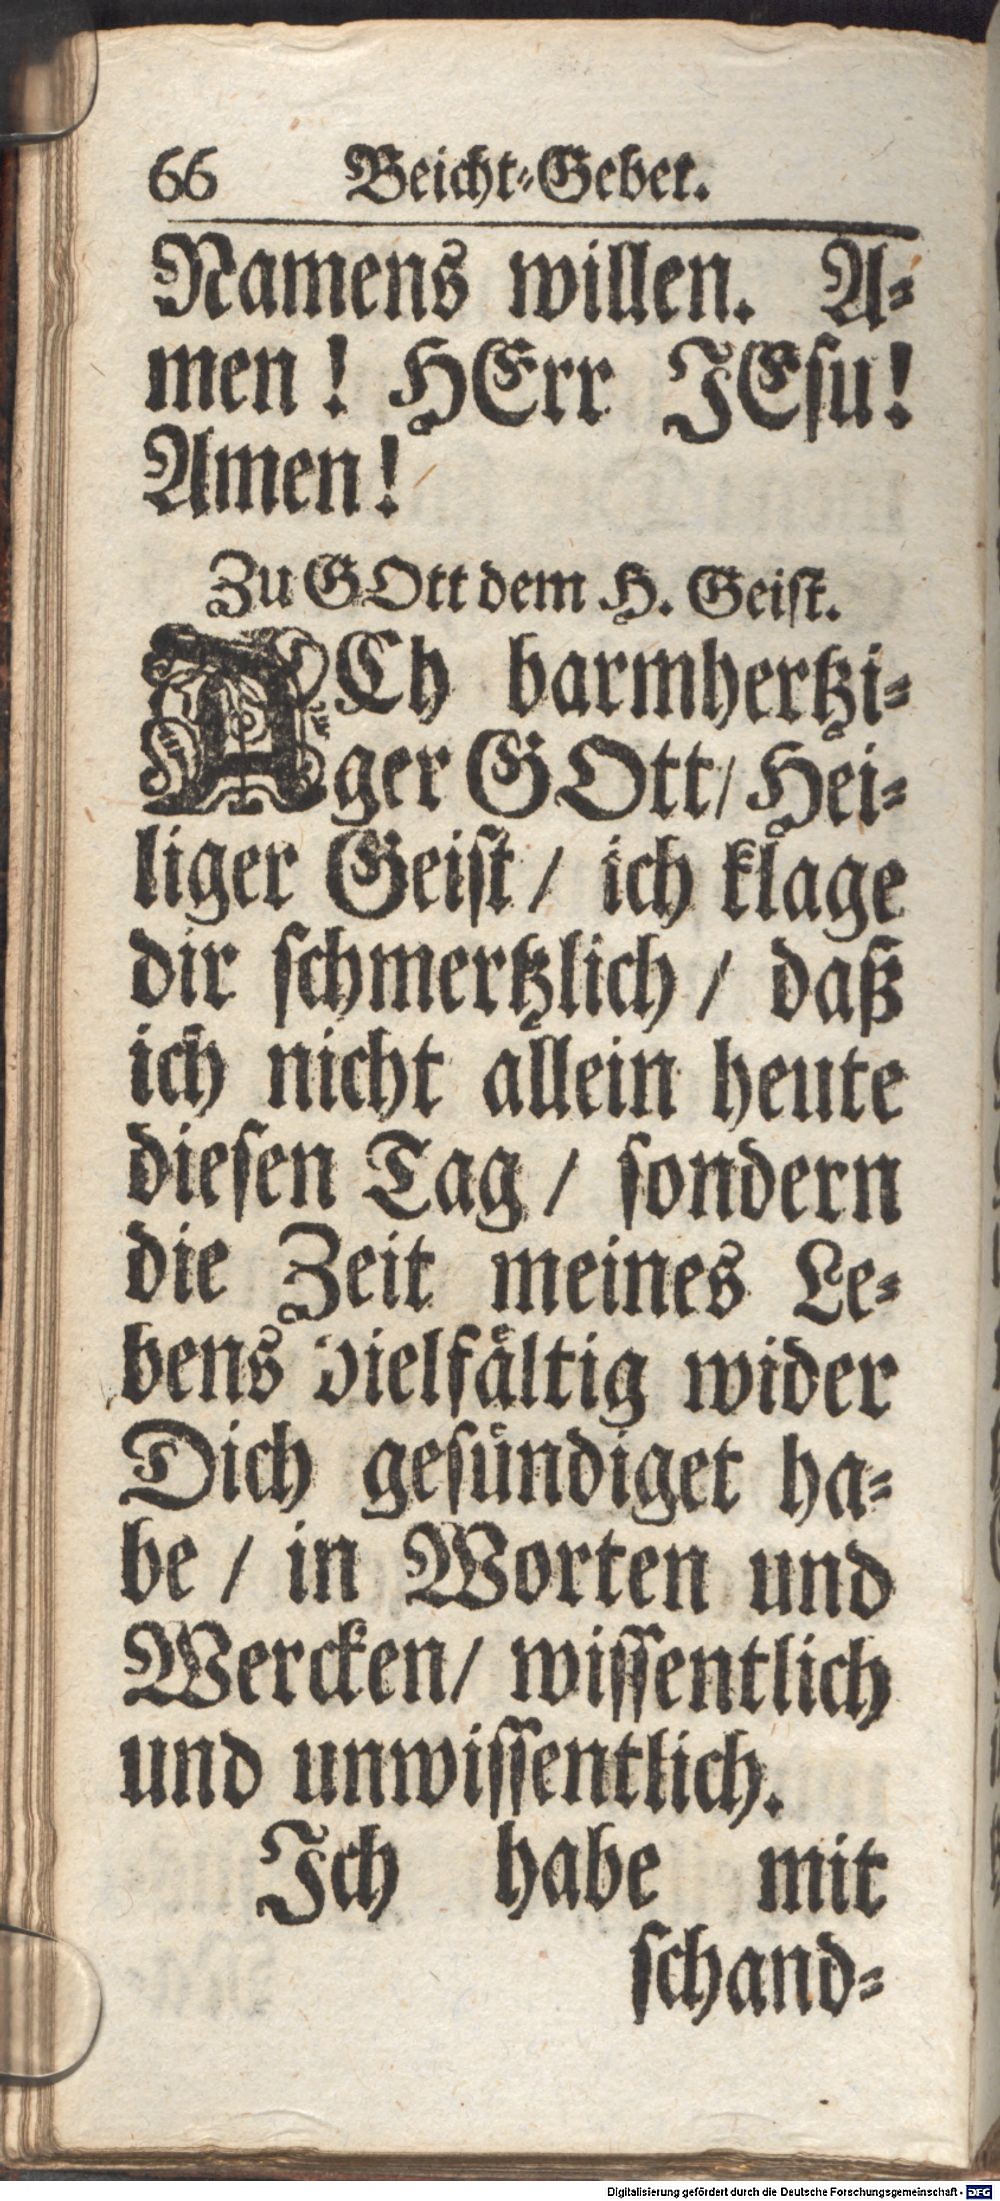 66 Beicht-Gebet.
Namens willen. A-
men! HErr JEsu!
Amen!
Zu GOtt dem H. Geist.
ACh barmhertzi-
ger GOtt/ Hei-
liger Geist/ ich klage
dir schmertzlich/ daß
ich nicht allein heute
diesen Tag/ sondern
die Zeit meines Le-
bens vielfältig wider
Dich gesündiget ha-
be/ in Worten und
Wercken/ wissentlich
und unwissentlich.
Ich habe mit
schand-
Digitalisierung gefördert durch die Deutsche Forschungsgemeinschaft - DFG